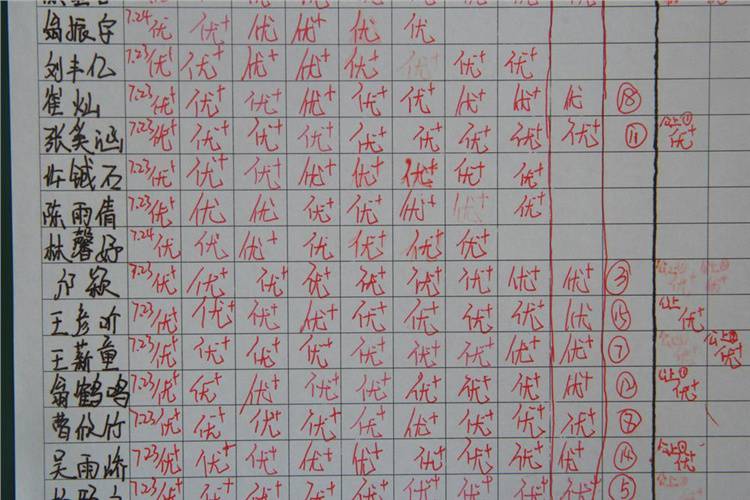 翁振宇 7.24/优 优+ 优 优+ 优 优
刘丰亿 7.23/优+ 优+ 优+ 优+ 优+ 优+ 优+
崔灿 7.23/优+ 优+ 优+ 优+ 优+ 优+ 优+ 优+ 优 ⑱
张笑涵 7.23/优+ 优+ 优+ 优+ 优+ 优+ 优+ 优+ 优+ ⑪ 优+
铖石 7.23/优+ 优+ 优+ 优+ 优+ 优+ 优+ 优+
陈雨倩 7.23/优+ 优 优 优+ 优+ 优+ 优+
林馨妤 7.24/优 优 优+ 优 优+ 优+ 优+
颖 7.23/优+ 优+ 优+ 优+ 优+ 优+ 优+ 优+ 优+ ③
王彦 7.23/优+ 优+ 优+ 优+ 优+ 优+ 优+ 优+ 优 ⑮ 优+
王薪童 7.23/优+ 优+ 优+ 优+ 优+ 优+ 优+ 优+ 优+ ⑦ 优+
翁鹤鸣 7.23/优+ 优+ 优+ 优+ 优+ 优+ 优+ 优+ 优+ ⑫ 优+
曹攸竹 7.23/优+ 优+ 优+ 优+ 优+ 优+ 优+ 优+ 优+ ⑧
吴雨 7.23/优+ 优+ 优+ 优+ 优+ 优+ 优+ 优+ 优 ⑭ 优+
7.23/优+ 优+ 优+ 优+ 优+ 优+ ⑤